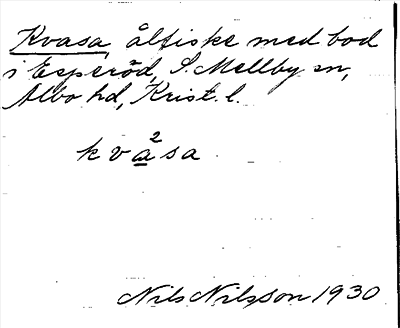 Kvasa, ålfiske med bod
i Esperöd, S. Mellby sn,
Albo hd, Krist. l.
2
kvasa
Nils Nilsson 1930